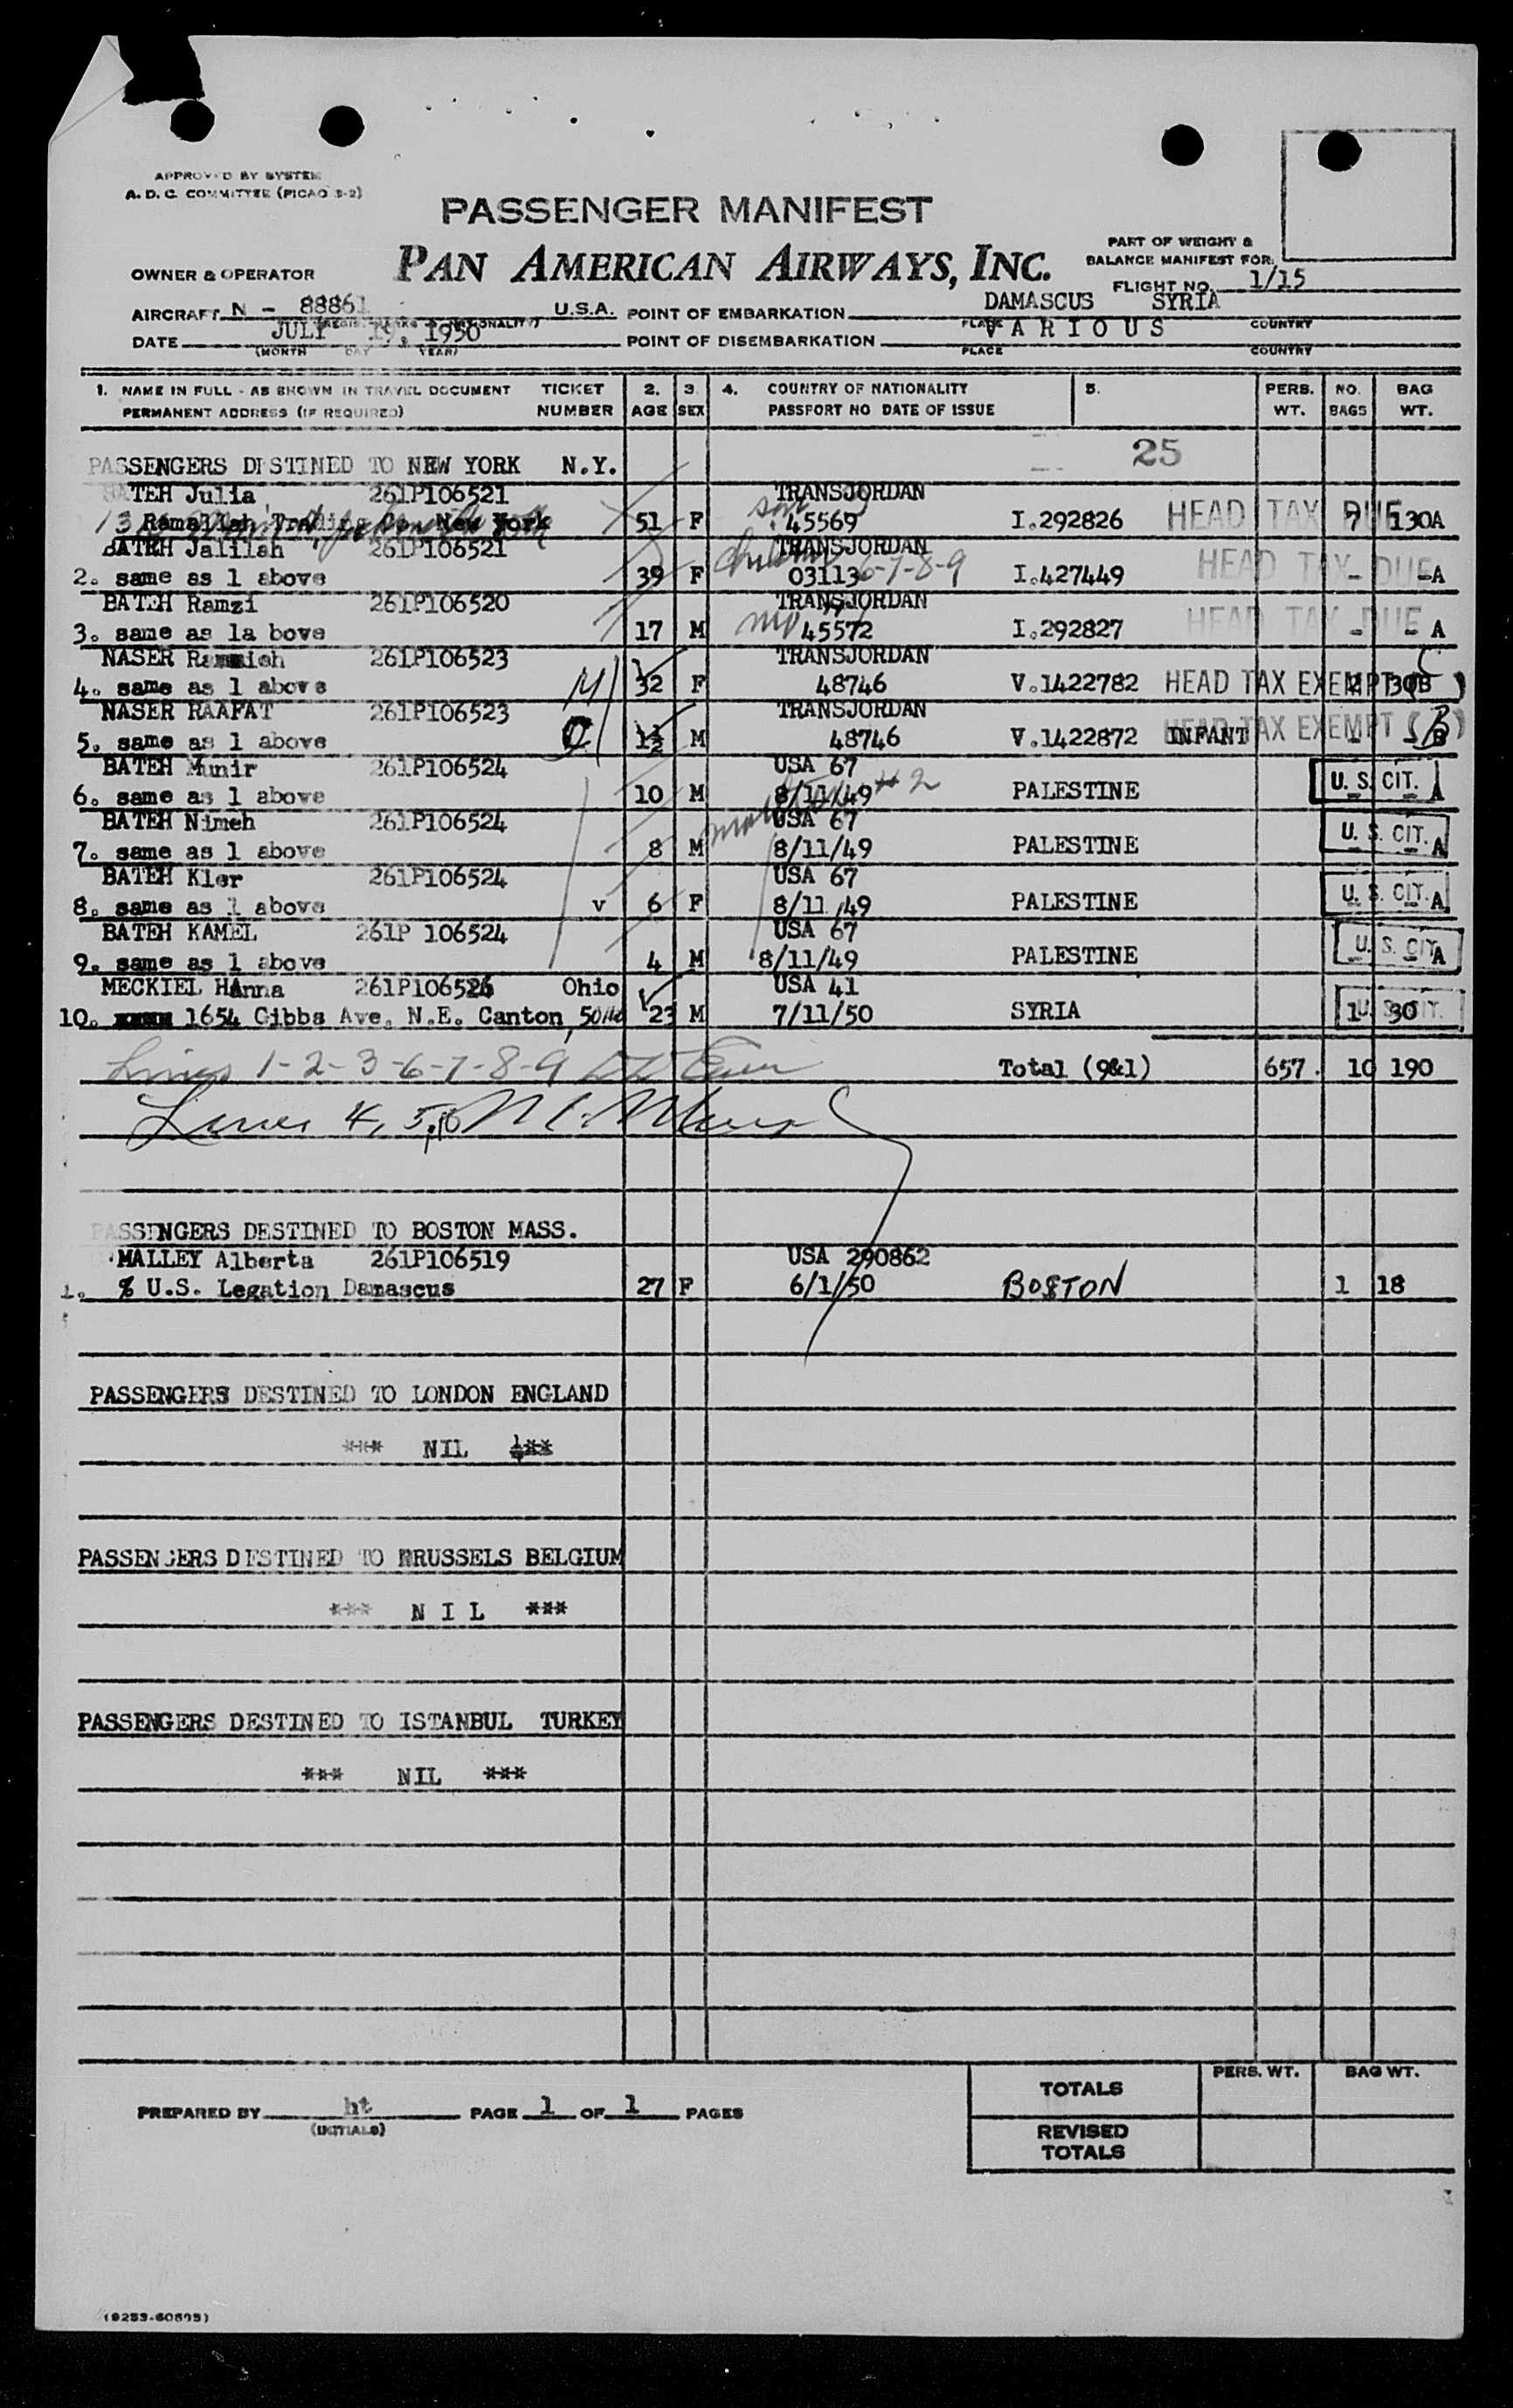 APPROVED BY SYSTEM
A. D. C. COMMITTEE (PICAO 3-2)
PASSENGER MANIFEST
PAN AMERICAN AIRWAYS, INC.
PART OF WEIGHT &
BALANCE MANIFEST FOR:
OWNER & OPERATOR
FLIGHT NO. 1/15
AIRCRAFT N - 88861 U.S.A. POINT OF EMBARKATION DAMASCUS SYRIA
PLACE COUNTRY
DATE JULY 19, 1950 POINT OF DISEMBARKATION VARIOUS
(MONTH DAY YEAR) PLACE COUNTRY
1. NAME IN FULL - AS SHOWN IN TRAVEL DOCUMENT TICKET 2. 3. 4. COUNTRY OF NATIONALITY 5. PERS. NO. BAG
PERMANENT ADDRESS (IF REQUIRED) NUMBER AGE SEX PASSPORT NO DATE OF ISSUE WT. BAGS WT.
25
PASSENGERS DISTINED TO NEW YORK N.Y.
BATEH Julia 261P106521 TRANSJORDAN
Ramallah Trading Co. New York 51 F 45569 I.292826 HEAD TAX DUE 7 130A
BATEH Jalilah 261P106521 TRANSJORDAN
2. same as 1 above 39 F 03113 6-7-8-9 I.427449 HEAD TAX DUE - -A
BATEH Ramzi 261P106520 TRANSJORDAN
3. same as 1a bove 17 M 45572 I.292827 HEAD TAX DUE - - A
NASER 261P106523 TRANSJORDAN
4. same as 1 above M 32 F 48746 V.1422782 HEAD TAX EXEMPT 30B
NASER RAAFAT 261P106523 TRANSJORDAN
5. same as 1 above 1½ M 48746 V.1422872 INFANT HEAD TAX EXEMPT (B) - - B
BATEH Munir 261P106524 USA 67
6. same as 1 above 10 M 8/11/49 #2 PALESTINE U.S. CIT. - - A
BATEH Nimeh 261P106524 USA 67
7. same as 1 above 8 M 8/11/49 PALESTINE U.S. CIT. - - A
BATEH Kler 261P106524 USA 67
8. same as 1 above v 6 F 8/11/49 PALESTINE U.S. CIT. - - A
BATEH KAMEL 261P 106524 USA 67
9. same as 1 above 4 M 8/11/49 PALESTINE U.S. CIT. - - A
MECKIEL HAnna 261P106526 Ohio USA 41
10. 1654 Gibbs Ave. N.E. Canton, 23 M 7/11/50 SYRIA 1 30 U.S. CIT.
Lines 1-2-3-6-7-8-9
Total (9&1) 657. 10 190
Lines 4, 5, 10
PASSENGERS DESTINED TO BOSTON MASS.
MALLEY Alberta 261P106519 USA 290862
1. % U.S. Legation Damascus 27 F 6/1/50 BOSTON 1 18
PASSENGERS DESTINED TO LONDON ENGLAND
*** NIL ***
PASSENGERS DESTINED TO BRUSSELS BELGIUM
*** N I L ***
PASSENGERS DESTINED TO ISTANBUL TURKEY
*** NIL ***
PERS. WT. BAG WT.
TOTALS
PREPARED BY ht PAGE 1 OF 1 PAGES
(INITIALS)
REVISED
TOTALS
(9253-60895)